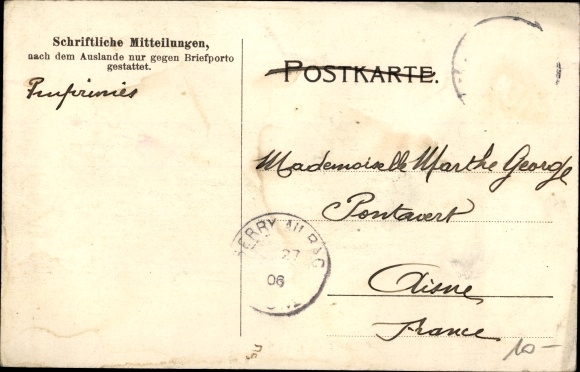 Schriftliche Mitteilungen,
nach dem Auslande nur gegen Briefporto
gestattet.
Imprimés
POSTKARTE.
Mademoiselle Marthe George
Pontavert
Aisne
France
BERRY AU BAC
27
06
10-